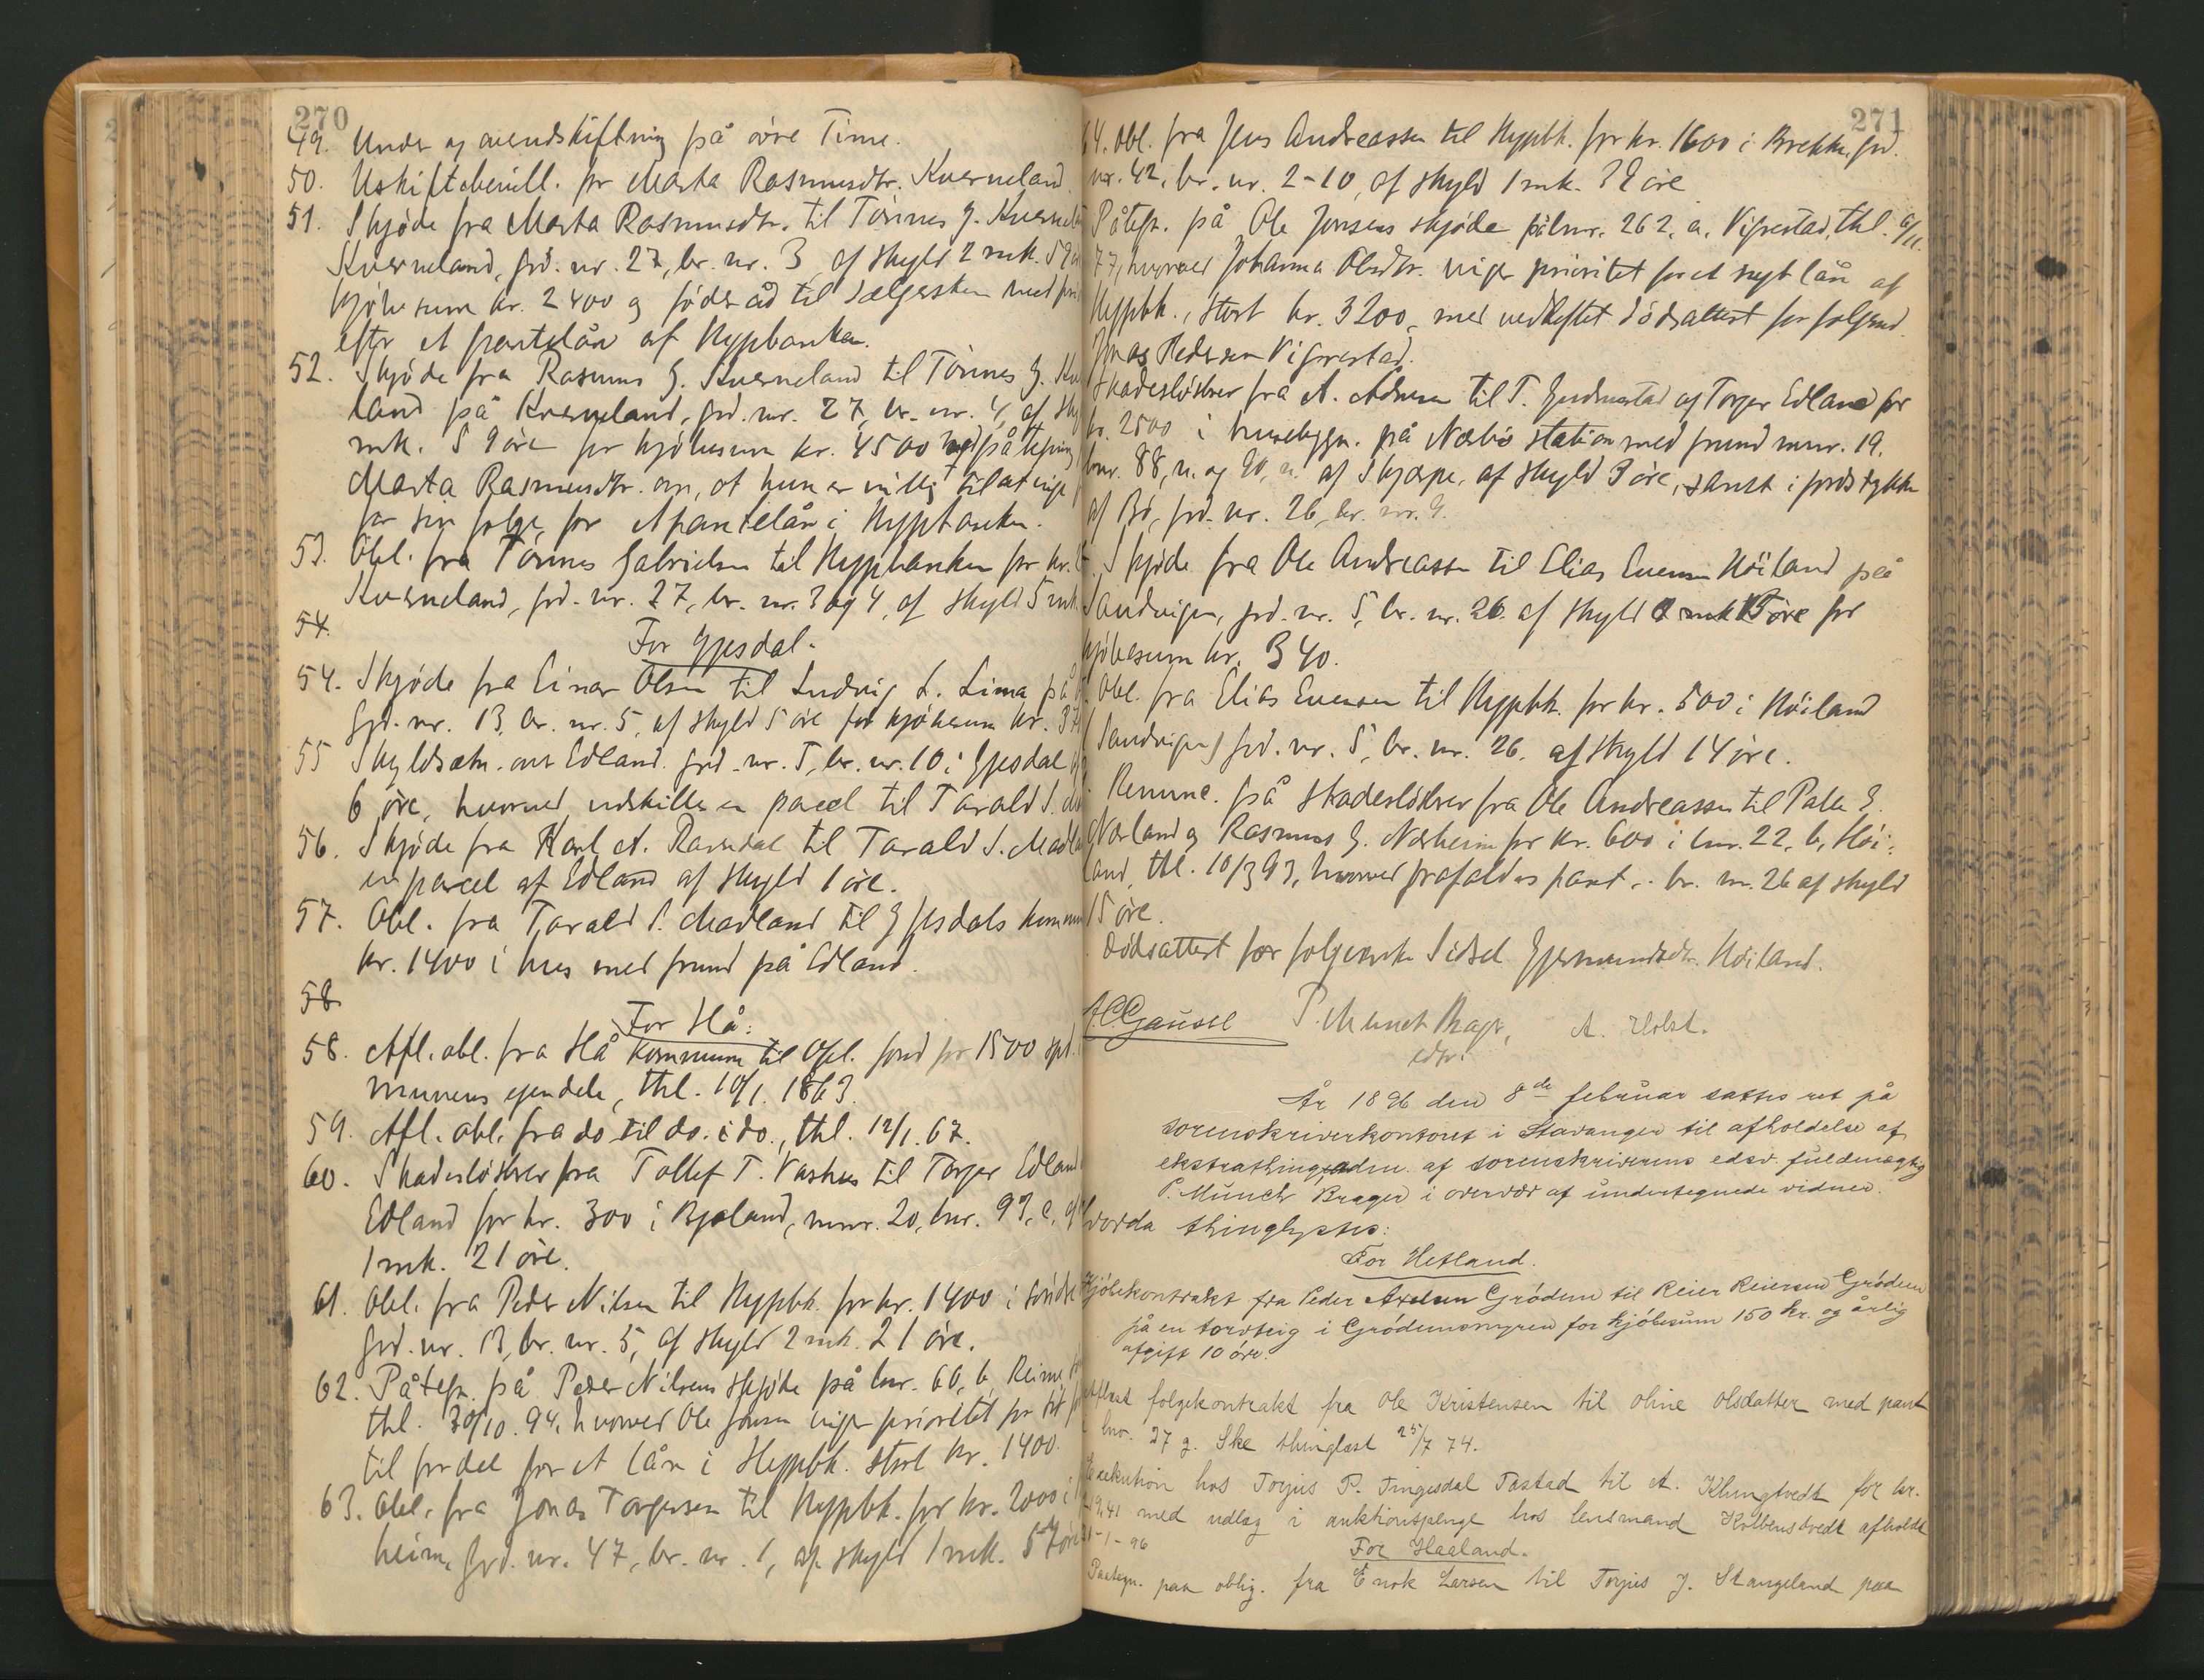 270
49. Under og avendskiftning på övre Time.
50. Uskiftebevill. for Marta Rasmusdtr. Kverneland.
51. Skjøde fra Marta Rasmusdtr. til Tönnes G. Kvernela
Kverneland, grd. nr. 27, br. nr. 3 af skyld 2 mk.
kjöbesum kr. 2400 og föderåd til sælgersken med pri
efter et pantelån af Hypbanken.
52. Skjøde fra Rasmus G. Kverneland til Tönnes G. Kv
land på Kverneland, grd. nr. 27, br. nr. 4, af sky
mk. 59 öre for kjöbesum kr. 4500 med påtegning
Marta Rasmusdtr. om, at hun er villig til at vige
for sin folge for et pantelån i Hypbanken.
53. Obl. fra Tönnes Gabrielsen til Hypbanken for kr.
Kverneland, grd. nr. 27, br. nr. 3 og 4, af skyld 5 mk
54.
For Gjesdal.
54. Skjøde fra Einar Olsen til Ludvig L. Lima på
grd. nr. 13, br. nr. 5, af skyld 5 öre for kjöbesum kr.
55 Skyldsætn. over Edland. grd. nr. 5, br. nr. 10 i Gjesdal
6 öre, hvorved udskilles en parcel til Tarald S.
56. Skjøde fra Karl A. Ravndal til Tarald S. Madla
en parcel af Edland af skyld 1 öre.
57. Obl. fra Tarald S. Madland til Gjesdals kommu
kr. 1400 i hus med grund på Edland.
58
For Hå:
58. Afl. obl. fra Hå kommune til Opl. fond for 1500 spd.
munens ejendele, thl. 10/1. 1863.
59. Afl. obl. fra do til do. i do., thl. 12/1. 67.
60. Skadeslösbrev fra Tollef T. Vashus til Torger Edland
Edland for kr. 300 i Bjaland, mnr. 20, lnr. 93, c, af
1 mk. 21 öre.
61. Obl. fra Peder Nilsen til Hypbk. for kr. 1400 i söndre
grd. nr. 13, br. nr. 5, af skyld 2 mk. 21 öre.
62. Påtegn. på Peder Nilsens skjøde på lnr. 66, b, Reime,
thl. 30/10. 94, hvorved Ole Jonsen viger prioritet for sit
til fordel for et lån i Hypbk. stort kr. 1400.
63. Obl. fra Jonas Torgersen til Hypbk. for kr. 2000 i
heim, grd. nr. 47, br. nr. 1, af skyld 1 mk. 57 öre
271
64. Obl. fra Jens Andreassen til Hypbk. for kr. 1600 i Brekke, grd.
nr. 42, br. nr. 2-10, af skyld 1 mk. 32 öre
Påtegn. på Ole Jonsens skjøde på lnr. 262, a, Vigrestad, thl. 6/11.
77, hvorved Johanna Olsdtr. viger prioritet for et nyt lån af
Hypbk., stort kr. 3200, med vedheftet dödsattest for folgemd.
Jonas Pedersen Vigrestad.
Skadeslösbrev fra A. Adsen til T. Gudmestad og Torger Edland for
kr. 2500 i husebygn. på Nærbö station med grund mnr. 19.
lnr. 88, n. og 90, n. af Skjærpe, af skyld 3 öre, samt i jordstykke
af Bö, grd. nr. 26, br. nr. 9.
Skjøde fra Ole Andreassen til Elias Evensen Höiland på
Sandvigen, grd. nr. 5, br. nr. 26. af skyld 0 mk 15 öre for
kjöbesum kr. 340.
Obl. fra Elias Evensen til Hypbk. for kr. 500 i Höiland
(Sandvigen) grd. nr. 5, br. nr. 26. af skyld 14 öre.
Renunc. på skadeslösbrev fra Ole Andreassen til Palle E.
Nærland og Rasmus G. Nærheim for kr. 600 i lnr. 22, b, Höi-
land, thl. 10/3 93, hvorved frafaldes pant i br. nr. 26 af skyld
15 öre.
Dödsattest for folgemske Sidsel Gjermundsdtr. Höiland.
A.C. Gaussel P. Munch Brager, A. Holst.
edsv.
År 1896 den 8de februar sattes ret på
sorenskriverkontoret i Stavanger til afholdelse af
ekstrathing, adm. af sorenskriverens edsv. fuldmægtig
P. Munch Brager i overvær af undertegnede vidner.
Hvorda thinglystes:
For Hetland.
Kjöbekontrakt fra Peder Axelsen Grödem til Reier Reiersen Grödem
på en torvteig i Grödemsmyren for kjöbesum 150 kr. og årlig
afgift 10 öre.
Aflæst folgekontrakt fra Ole Kristensen til Oline Olsdatter med pant
i lnr. 27 g. Ske thinglæst 25/7 74.
Exekution hos Torjus P. Tingesdal Tastad til A. Klungtvedt for kr.
219,41 med udlæg i auktionspenge hos lensmand Kolbenstvedt afholdt
31-1-96
For Haaland.
Paategn. paa oblig. fra Enok Larsen til Torjus J. Stangeland paa